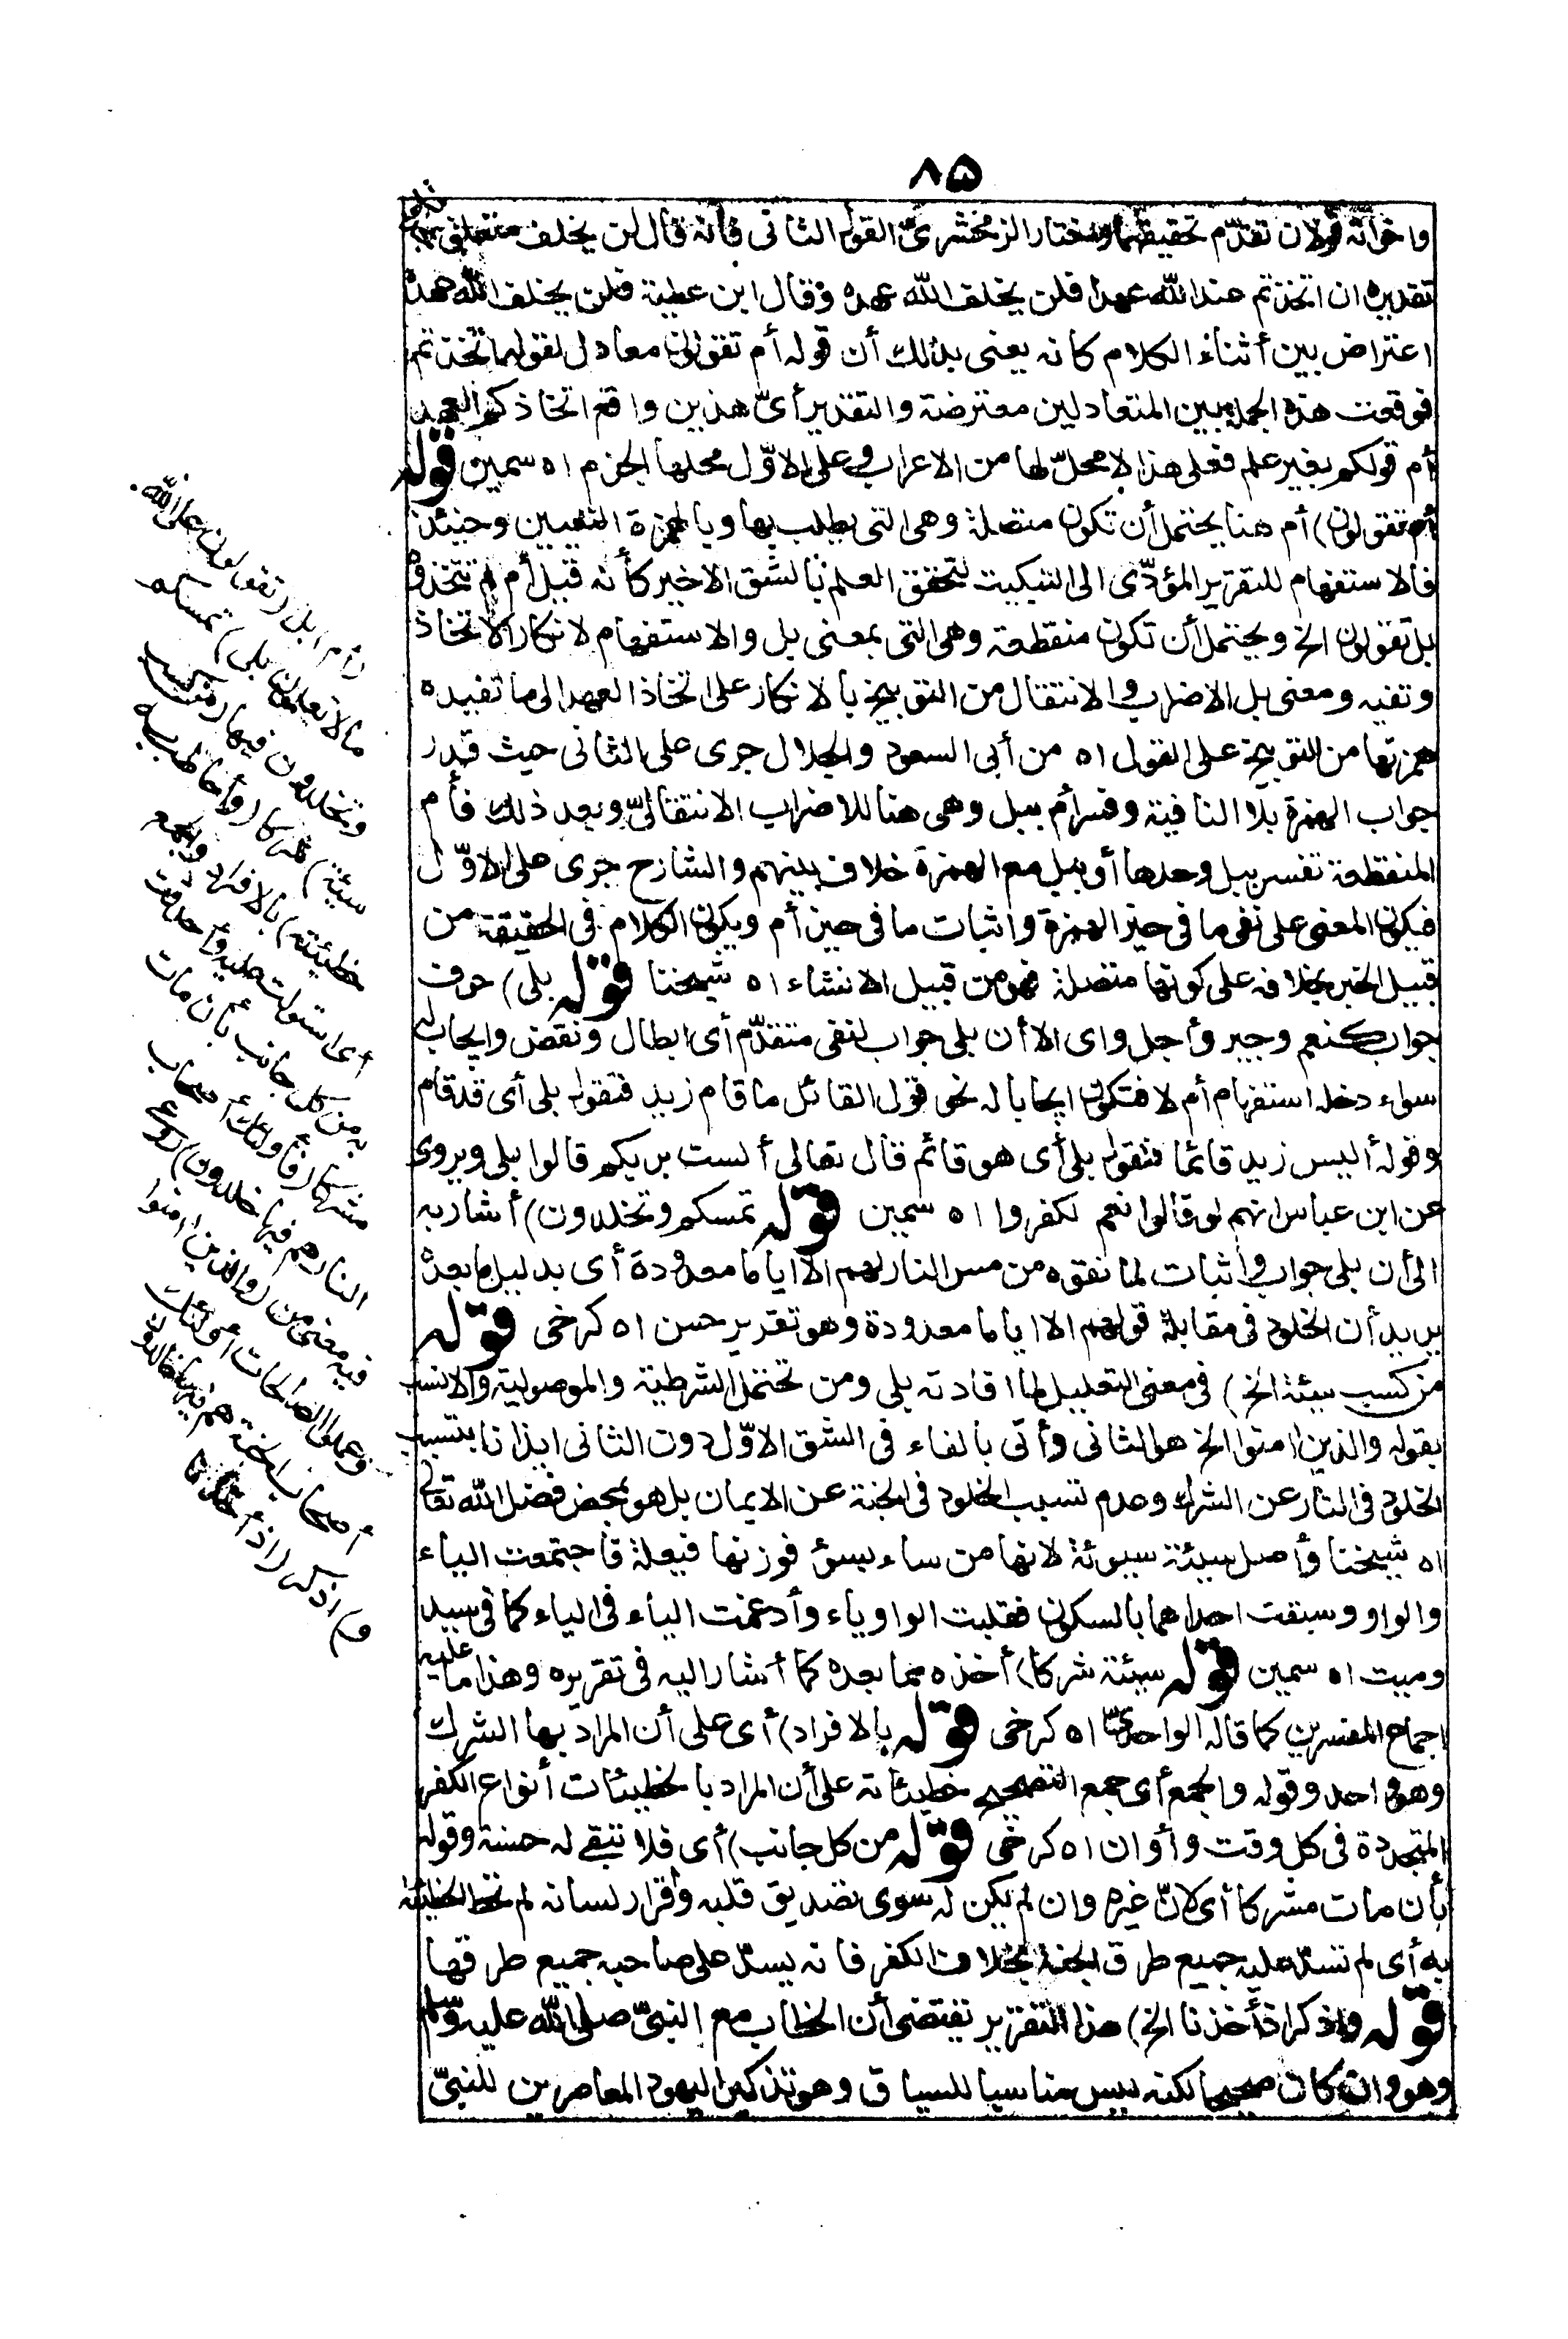 ٨٥
واخواته قولان تقدّم تحقيقهما واختار الزمخشرىّ القول الثانى فانه قال لن يخلف متعلق بمحذوف
تقديره ان اتخذتم عند الله عهدا فلن يخلف الله عهده وقال ابن عطية فلن يخلف الله عهده
اعتراض بين أثناء الكلام كانه يعنى بذلك أن قوله أم تقولون معادل لقوله أتخذتم
فوقعت هذه الجملة بين المتعادلين معترضة والتقدير أىّ هذين واقع اتخاذكم العهد
أم قولكم بغير علم فعلى هذا لا محلّ لها من الاعراب وعلى الاوّل محلها الجزم اه سمين قوله
أم تقولون) أم هنا يحتمل أن تكون متصلة وهى التى يطلب بها وبالهمزة التعيين وحينئذ
فالاستفهام للتقرير المؤدّى الى التبكيت لتحقق العلم بالشق الاخير كأنه قيل أم لم تتخذوه
بل تقولون الخ ويحتمل أن تكون منقطعة وهى التى بمعنى بل والاستفهام لانكار الاتخاذ
ونفيه ومعنى بل الاضراب والانتقال من التوبيخ بالانكار على اتخاذ العهد الى ما تفيده
همزتها من التوبيخ على القول اه من أبى السعود والجلال جرى على الثانى حيث قدر
جواب الهمزة بلا النافية وفسر أم ببل وهى هنا للاضراب الانتقالىّ وبعد ذلك فأم
المنقطعة تفسر ببل وحدها أو ببل مع الهمزة خلاف بينهم والشارح جرى على الاوّل
فيكون المعنى على نفى ما فى حيز الهمزة واثبات ما فى حيز أم ويكون الكلام فى الحقيقة من
قبيل الخبر بخلافه على كونها متصلة فهو من قبيل الانشاء اه شيخنا قوله بلى) حرف
جواب كنعم وجير وأجل واى الا أن بلى جواب لنفى متقدّم أى ابطال ونقض وايجاب له
سواء دخله استفهام أم لا فتكون ايجابا له نحو قول القائل ما قام زيد فتقول بلى أى قد قام
وقوله أليس زيد قائما فتقول بلى أى هو قائم قال تعالى ألست بربكم قالوا بلى ويروى
عن ابن عباس انهم لو قالوا نعم لكفروا اه سمين قوله تمسكم وتخلدون) أشار به
الى أن بلى جواب واثبات لما نفوه من مس النار لهم الا أياما معدودة أى بدليل ما بعده
يريد أن الخلود فى مقابلة قولهم الا اياما معدودة وهو تقرير حسن اه كرخى قوله
من كسب سيئة الخ) فى معنى التعليل لما افادته بلى ومن تحتمل الشرطية والموصولية والانسب
بقوله والذين امنوا الخ هو الثانى وأتى بالفاء فى الشق الاوّل دون الثانى ايذانا بتسبب
الخلود فى النار عن الشرك وعدم تسبب الخلود فى الجنة عن الايمان بل هو بمحض فضل الله تعالى
اه شيخنا وأصل سيئة سيوئة لانها من ساء يسوء فوزنها فيعلة فاجتمعت الياء
والواو وسبقت احداهما بالسكون فقلبت الواو ياء وأدغمت الياء فى الياء كما فى سيد
وميت اه سمين قوله سيئة شركا) أخذه مما بعده كما أشار اليه فى تقريره وهذا ما عليه
اجماع المفسرين كما قاله الواحدىّ اه كرخى قوله بالافراد) أى على أن المراد بها الشرك
وهو واحد وقوله والجمع أى جمع التصحيح خطيئاته على أن المراد بالخطيئات أنواع الكفر
المتجددة فى كل وقت وأوان اه كرخى قوله من كل جانب) أى فلا تبقى له حسنة وقوله
بأن مات مشركا أى لانّ غيره وان لم يكن له سوى تصديق قلبه واقرار لسانه لم تحط الخطيئة
به أى لم تسدّ عليه جميع طرق الجنة بخلاف الكفر فانه يسدّ على صاحبه جميع طرقها
قوله واذكر اذ أخذنا الخ) هذا التقرير يقتضى أن الخطاب مع النبىّ صلى الله عليه وسلم
وهو وان كان صحيحا لكنه ليس مناسبا للسياق وهو تذكير اليهود المعاصرين للنبىّ
(أم) بل (تقولون على الله
ما لا تعلمون بلى) تمسكم
وتخلدون فيها (من كسب
سيئة) شركا (وأحاطت به
خطيئته) بالافراد والجمع
أى استولت عليه وأحدقت
به من كل جانب بأن مات
مشركا (فأولئك أصحاب
النار هم فيها خالدون) روعى
فيه معنى من (والذين امنوا
وعملوا الصالحات أولئك
أصحاب الجنة هم فيها خالدون
و) اذكر (اذ أخذنا